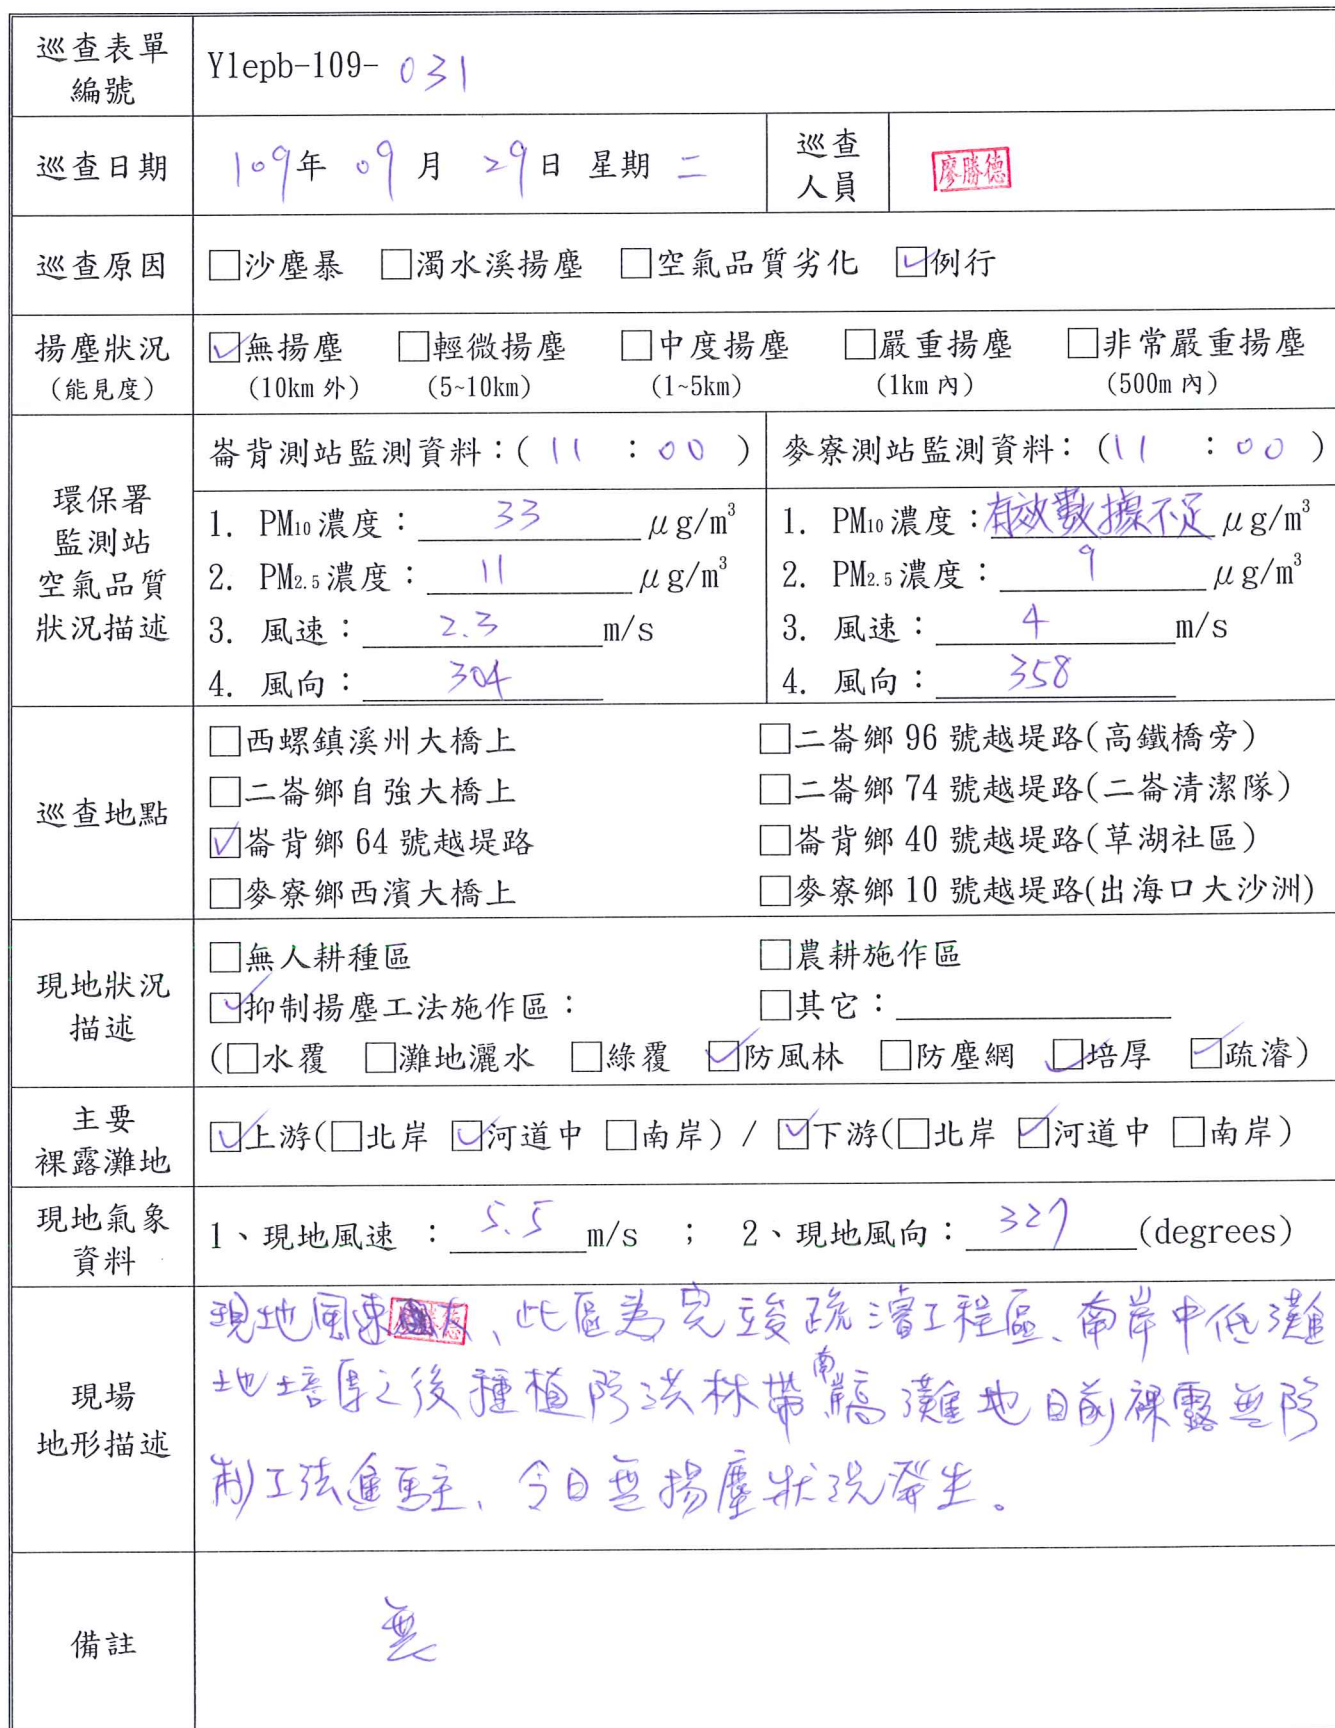 巡查表單
編號
Ylepb-109- 031
巡查日期
109年 09 月 29日 星期 二
巡查
人員
廖勝德
巡查原因
□沙塵暴 □濁水溪揚塵 □空氣品質劣化 ☑例行
揚塵狀況
(能見度)
☑無揚塵 □輕微揚塵 □中度揚塵 □嚴重揚塵 □非常嚴重揚塵
(10km 外) (5~10km) (1~5km) (1km 內) (500m 內)
環保署
監測站
空氣品質
狀況描述
崙背測站監測資料：( 11 : 00 )
1. PM10濃度： 33 μg/m³
2. PM2.5濃度： 11 μg/m³
3. 風速： 2.3 m/s
4. 風向： 304
麥寮測站監測資料： (11 : 00 )
1. PM10濃度：有效數據不足 μg/m³
2. PM2.5濃度： 9 μg/m³
3. 風速： 4 m/s
4. 風向： 358
巡查地點
□西螺鎮溪州大橋上 □二崙鄉 96 號越堤路(高鐵橋旁)
□二崙鄉自強大橋上 □二崙鄉 74 號越堤路(二崙清潔隊)
☑崙背鄉 64 號越堤路 □崙背鄉 40 號越堤路(草湖社區)
□麥寮鄉西濱大橋上 □麥寮鄉 10 號越堤路(出海口大沙洲)
現地狀況
描述
□無人耕種區 □農耕施作區
☑抑制揚塵工法施作區： □其它：
(□水覆 □灘地灑水 □綠覆 ☑防風林 □防塵網 ☑培厚 ☑疏濬)
主要
裸露灘地
☑上游(□北岸 ☑河道中 □南岸) / ☑下游(□北岸 ☑河道中 □南岸)
現地氣象
資料
1、現地風速 ： 5.5 m/s ； 2、現地風向： 327 (degrees)
現場
地形描述
現地風速大、此區為完竣疏濬工程區、南岸中低灘
地培厚之後種植防洪林帶南岸高灘地目前裸露無防
制工法進駐、今日無揚塵狀況發生。
備註
無